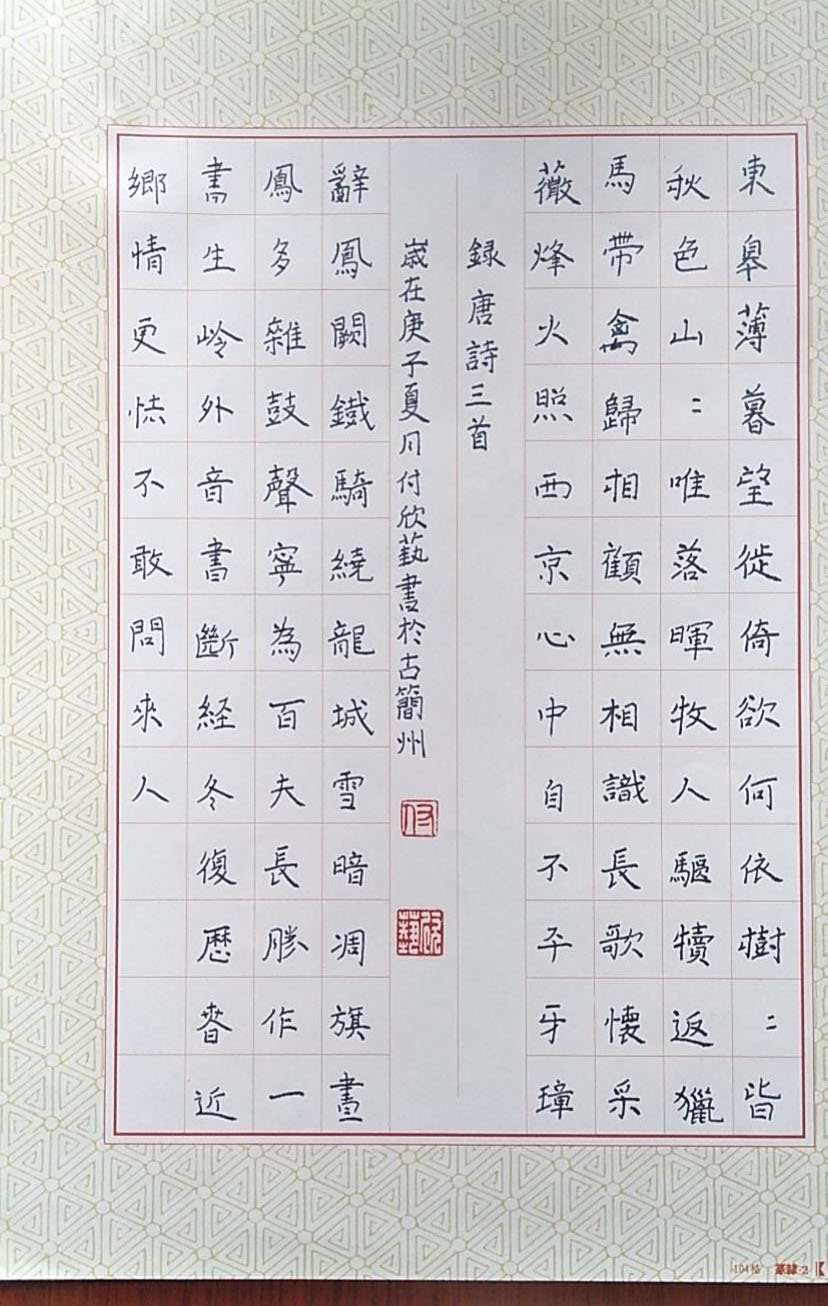 東皋薄暮望徙倚欲何依樹〻皆
秋色山〻唯落暉牧人驅犢返獵
馬帶禽歸相顧無相識長歌懷采
薇烽火照西京心中自不平牙璋
録唐詩三首
歲在庚子夏月付欣藝書於古簡州
付
欣藝
辭鳳闕鐵騎繞龍城雪暗凋旗畫
鳳多雜鼓聲寧為百夫長勝作一
書生岭外音書斷経冬復歷春近
鄉情更怯不敢問來人
104格 篆隸-2